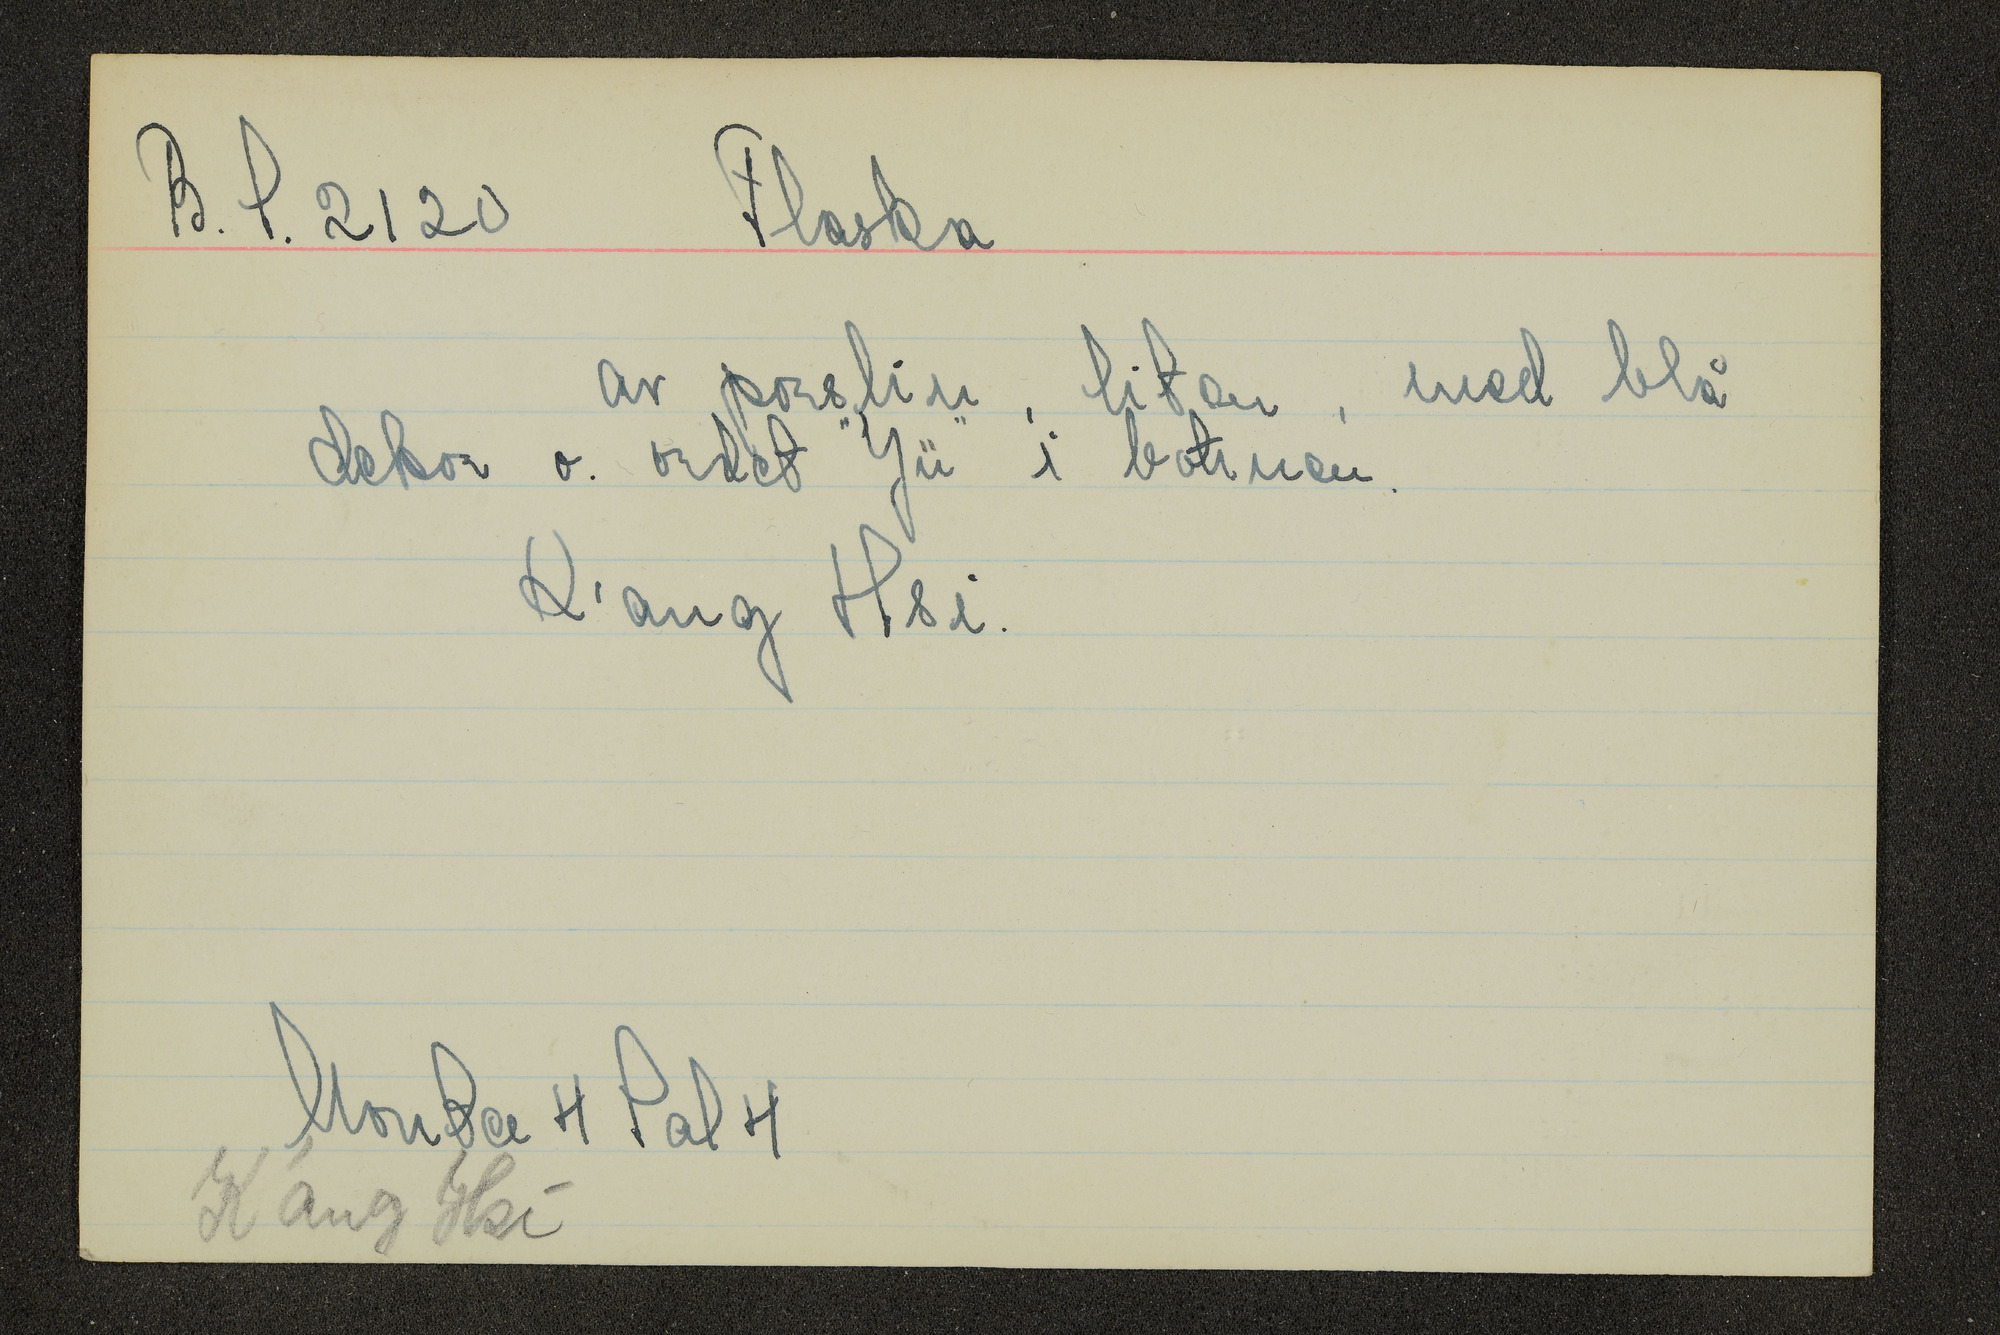 B. P. 2120 Flaska
av porslin, liten, med blå
dekor o. ordet "Yü" i botnen.
K'ang Hsi.
Monter 4 Pal 4
K'ang Hsi